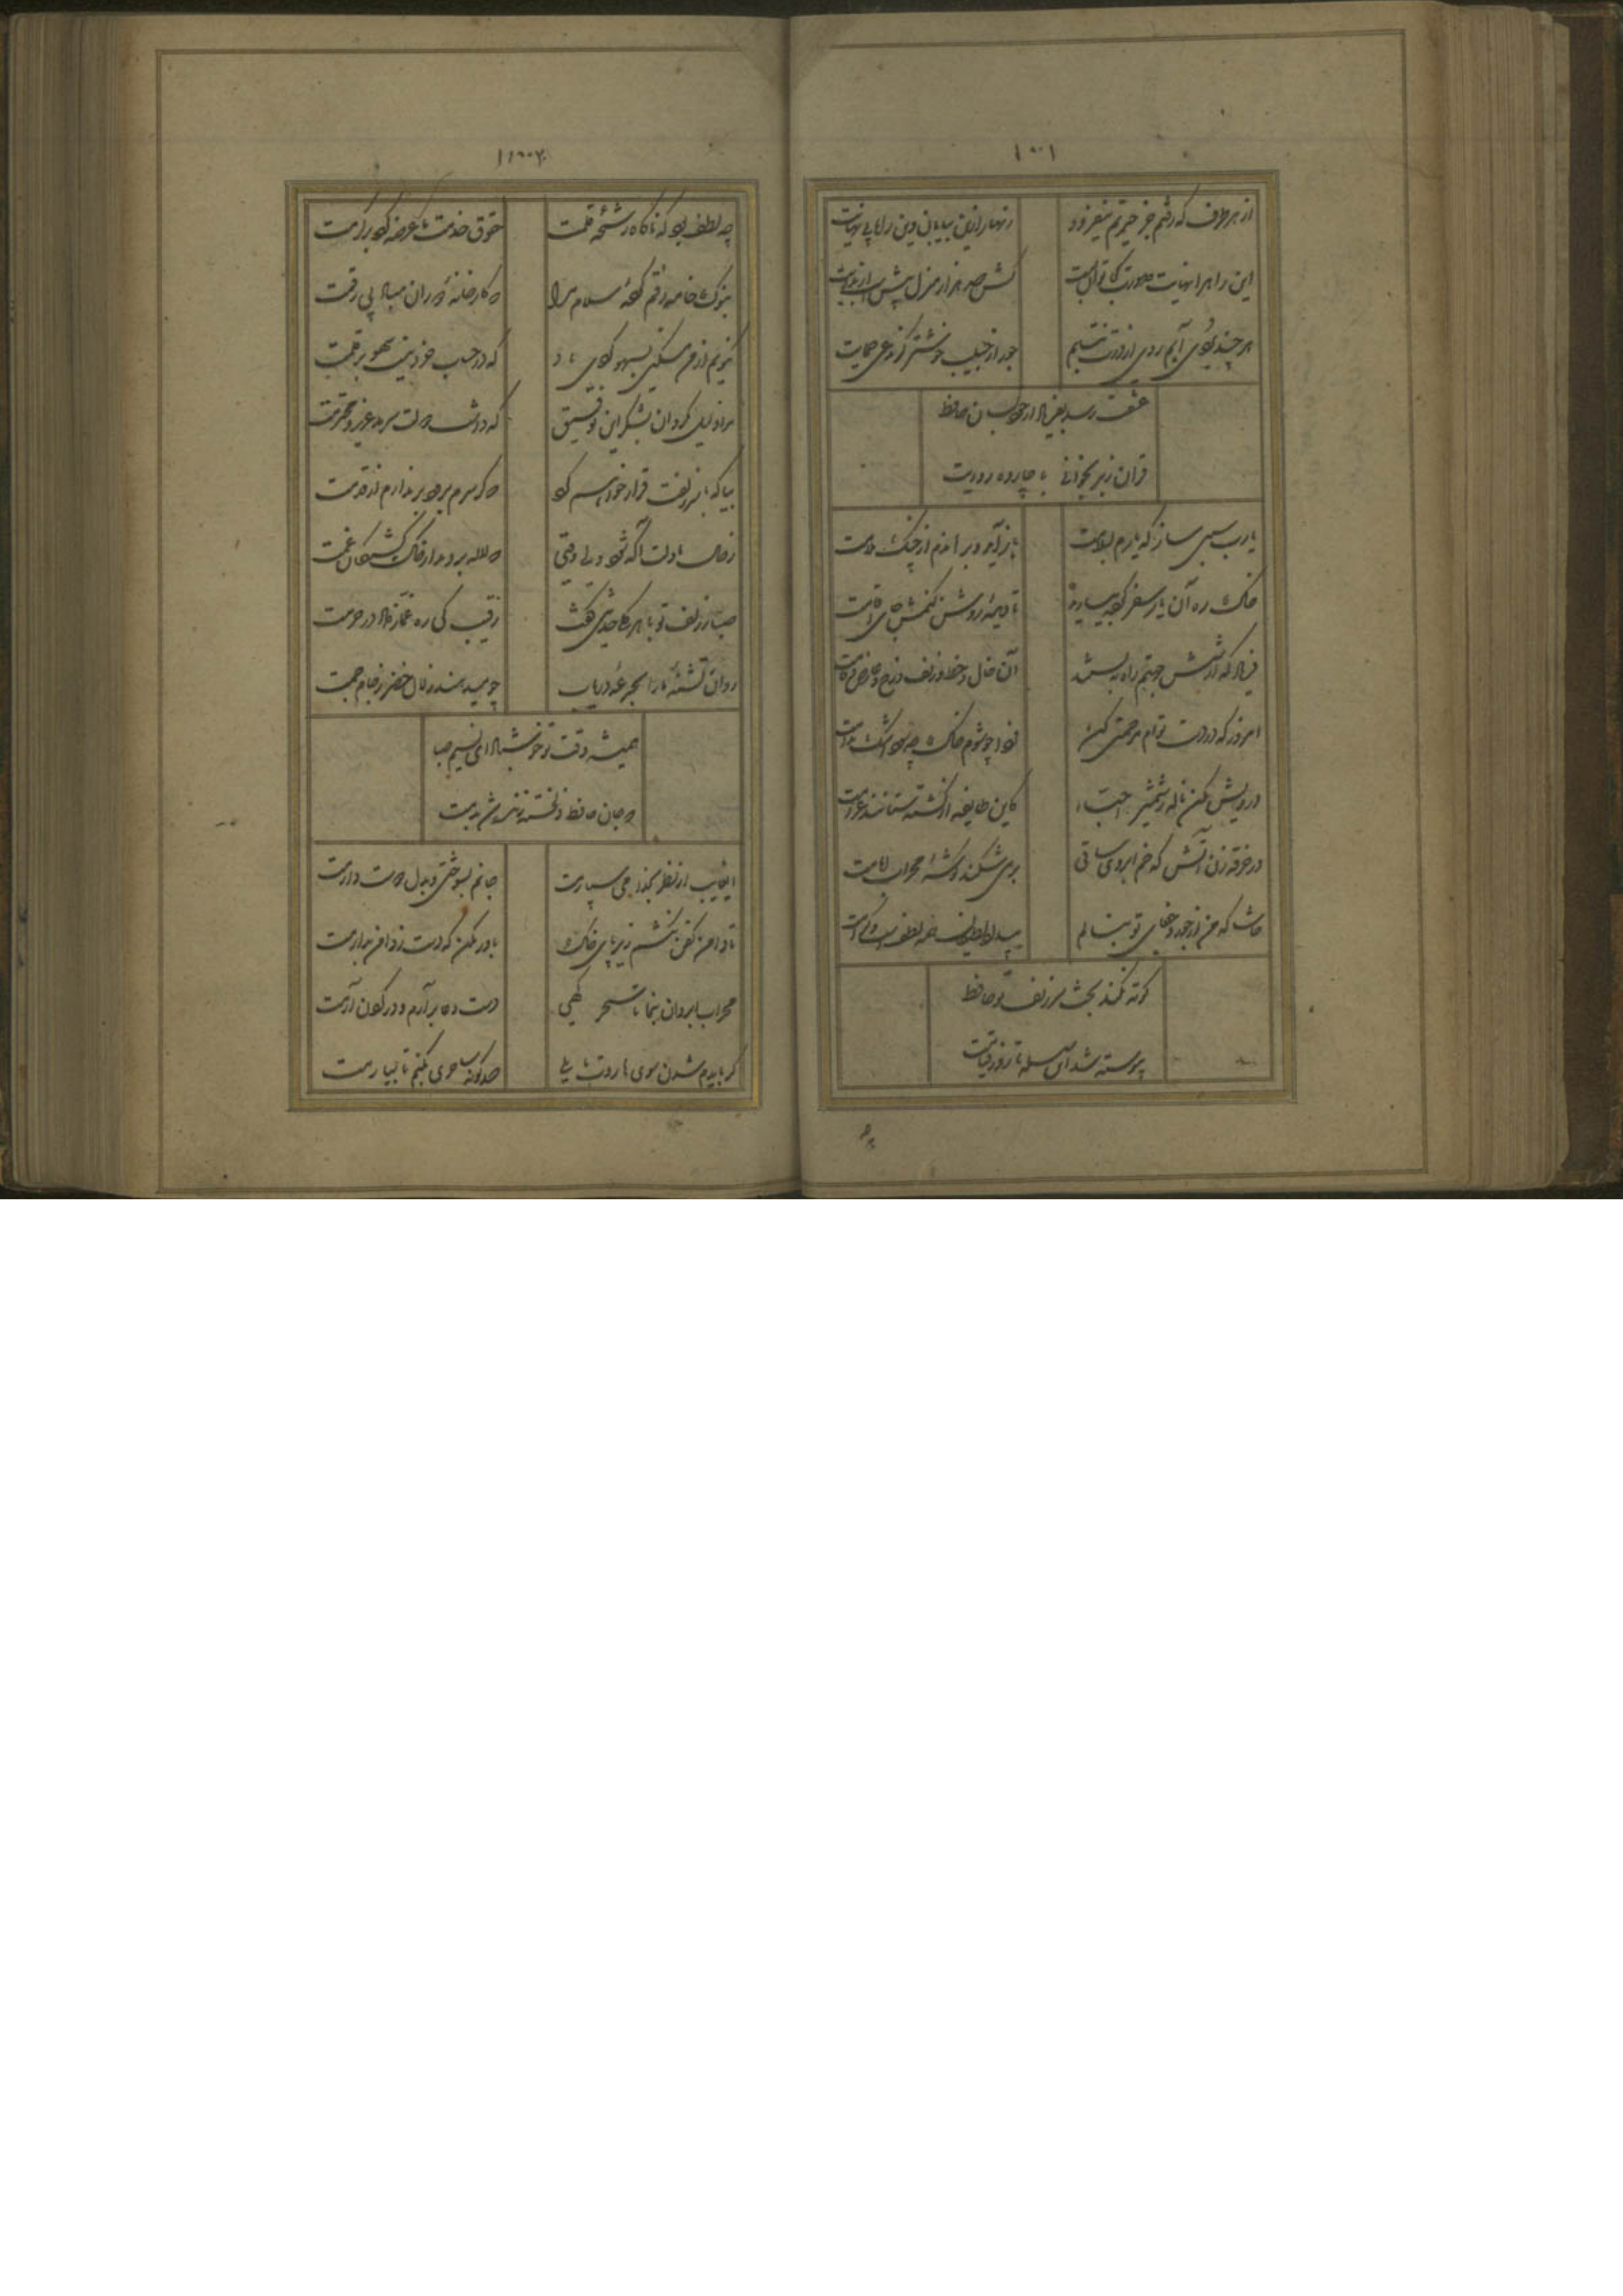 ۱۰۱
از هر طرف که رفتم جز حیرتم نیفزود زنهار ازین بیابان وین راه بی نهایت
این راه را نهایت صورت کجا توان بست کش صد هزار منزل بیش است در بدایت
هر چند بردی آبم روی از درت نتابم جور از حبیب خوشتر کز مدعی حمایت
عشقت رسد بفریاد ار خود بسان حافظ
قرآن ز بر بخوانی با چارده روایت
یارب سببی ساز که یارم بسلامت باز آید و برهاندم از چنگ ملامت
خاک ره آن یار سفر کرده بیارید تا دیده روشن کنمش جای اقامت
فریاد که از شش جهتم راه ببستند آن خال و خط و زلف و رخ و عارض و قامت
امروز که در دست توام مرحمتی کن فردا چو شوم خاک چه سود اشک ندامت
درویش مکن ناله ز شمشیر احبا کاین طایفه از کشته ستانند غرامت
در خرقه زن آتش که خم ابروی ساقی بر می شکند گوشه محراب امامت
حاشا که من از جور و جفای تو بنالم بیداد لطیفان همه لطفست و کرامت
کوته نکند بحث سر زلف تو حافظ
پیوسته شد این سلسله تا روز قیامت
چه لطف بود که ناگاه رشحه قلمت حقوق خدمت ما عرضه کرد بر کرمت
بنوک خامه رقم کرده سلام مرا که کارخانه دوران مباد بی رقمت
نگویم از من بیدل بسهو کردی یاد که در حساب خرد نیست سهو بر قلمت
مرا ذلیل مگردان بشکر این توفیق که داشت دولت سرمد عزیز و محترمت
بیا که با سر زلفت قرار خواهم کرد که گر سرم برود بر ندارم از قدمت
ز حال ما دلت آگه شود ولی وقتی که لاله بر دمد از خاک کشتگان غمت
صبا ز زلف تو با هر گلی حدیثی گفت رقیب کی ره غماز داد در حرمت
روان تشنه ما را بجرعه دریاب چو میدهند زلال خضر ز جام جمت
همیشه وقت تو خوش باد ای نسیم صبا
که جان حافظ دلخسته زنده شد بدمت
ای غایب از نظر بخدا می سپارمت جانم بسوختی و بدل دوست دارمت
تا دامن کفن نکشم زیر پای خاک باور مکن که دست ز دامن بدارمت
محراب ابروان بنما تا سحر گهی دست دعا بر آرم و در گردن آرمت
گر بایدم شدن سوی هاروت بابلی صد گونه ساحری بکنم تا بیارمت